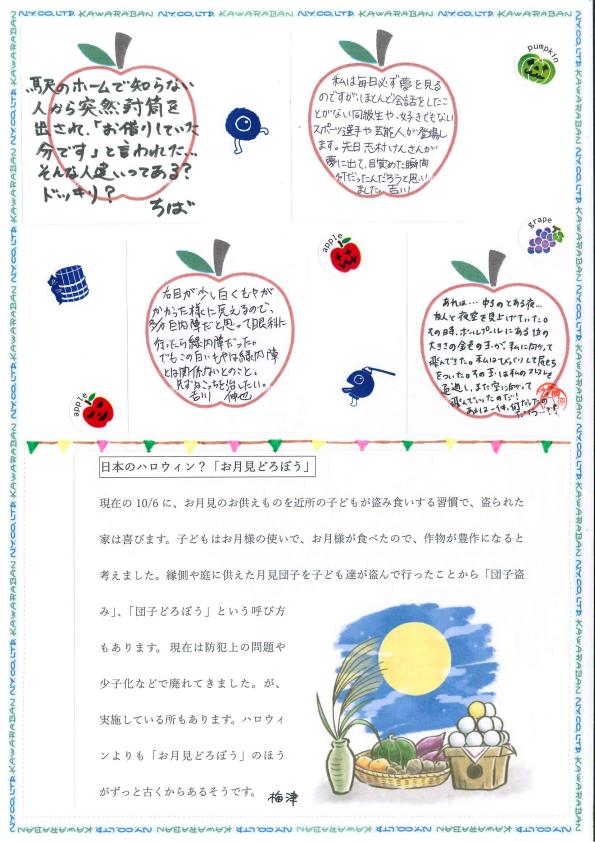 駅のホームで知らない
人から突然封筒を
出され、「お借りしていた
分です」と言われた…
そんな人違いってある?
ドッキリ?
ちば
私は毎日必ず夢を見る
のですが、ほとんど会話をしたこ
とがない同級生や、好きでもない
スポーツ選手や芸能人が登場し
ます。先日志村けんさんが
夢に出て、目覚めた瞬間
何だったんだろうと思い
ました。吉川
pumpkin
apple
grape
右目が少し白くもやが
かかった様に見えるので、
白内障だと思って眼科に
行ったら緑内障だった。
でもこの白いもやは緑内障
とは関係ないとのこと。
先ずはこっちを治したい。
吉川 伸也
あれは…中3のとある夜…
友人と夜空を見上げていた。
その時、ボールプールにある位の
大きさの金色の玉が、私に向かって
飛んできた。私はびっくりして尻もち
をついた。その玉は私の
通過し、また空に向かって
飛んでいったのだ!!
あれは一体、何だったの
だろう…
apple
日本のハロウィン?「お月見どろぼう」
現在の 10/6 に、お月見のお供えものを近所の子どもが盗み食いする習慣で、盗られた
家は喜びます。子どもはお月様の使いで、お月様が食べたので、作物が豊作になると
考えました。縁側や庭に供えた月見団子を子ども達が盗んで行ったことから「団子盗
み」、「団子どろぼう」という呼び方
もあります。 現在は防犯上の問題や
少子化などで廃れてきました。が、
実施している所もあります。ハロウィ
ンよりも「お月見どろぼう」のほう
がずっと古くからあるそうです。 梅津
KAWARABAN N.Y.CO.,LTD.